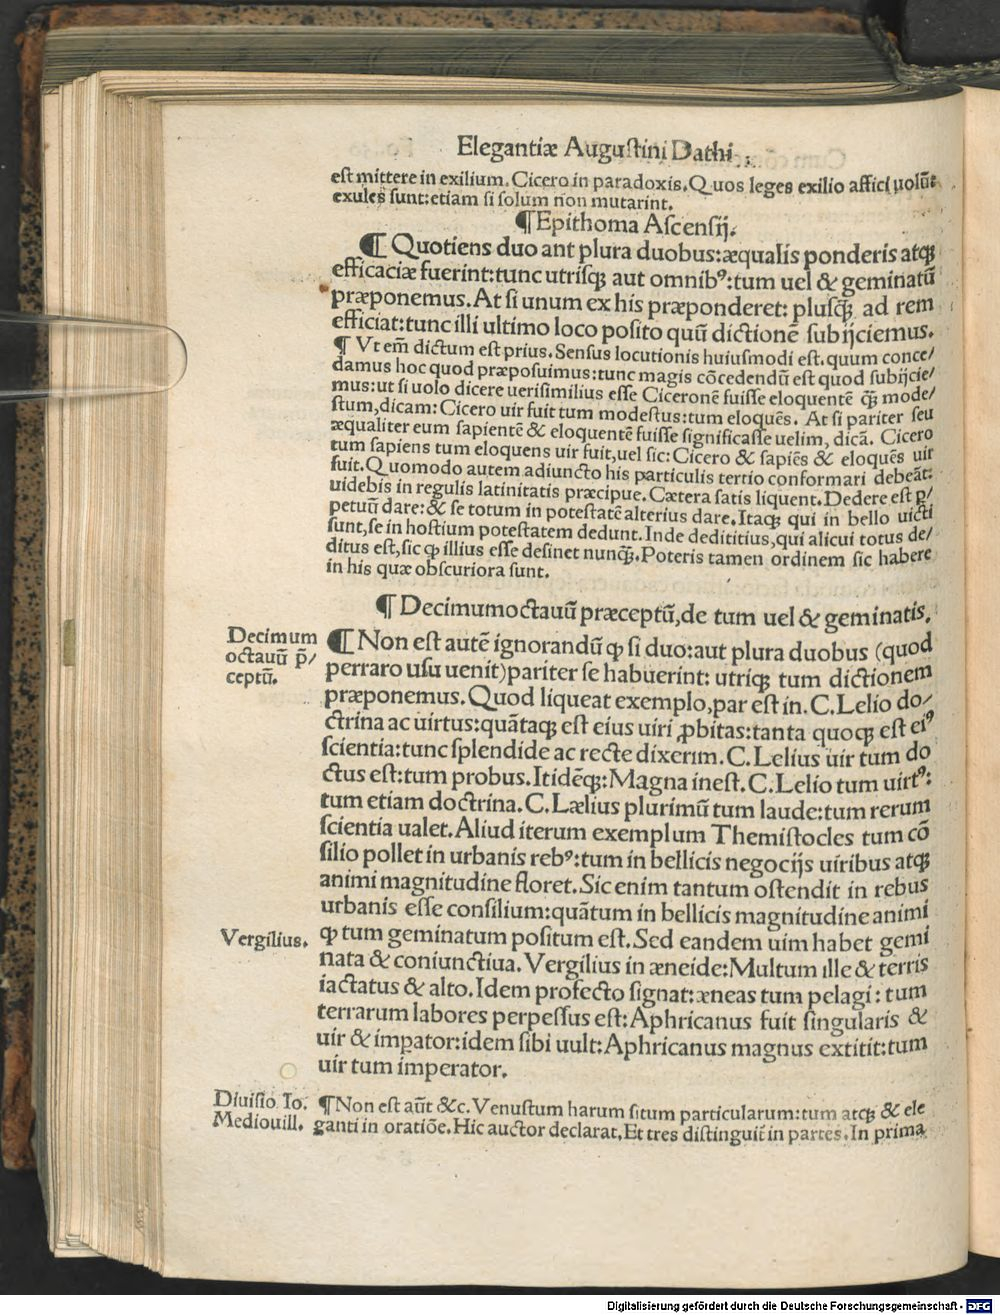 Elegantiæ Augustini Dathi
est mittere in exilium. Cicero in paradoxis. Quos leges exilio affici uolūt
exules sunt: etiam si solum non mutarint.
¶ Epithoma Ascensij.
¶ Quotiens duo ant plura duobus: æqualis ponderis atqꝫ
efficaciæ fuerint: tunc utrisqꝫ aut omnibꝰ: tum uel & geminatū
præponemus. At si unum ex his præponderet: plusqꝫ̄ ad rem
efficiat: tunc illi ultimo loco posito quū dictionē subijciemus.
¶ Vt em̄ dictum est prius. Sensus locutionis huiusmodi est. quum conce/
damus hoc quod præposuimus: tunc magis cōcedendū est quod subijcie/
mus: ut si uolo dicere uerisimilius esse Ciceronē fuisse eloquentē qꝫ̄ mode/
stum, dicam: Cicero uir fuit tum modestus: tum eloquēs. At si pariter seu
æqualiter eum sapientē & eloquentē fuisse significasse uelim, dicā. Cicero
tum sapiens tum eloquens uir fuit, uel sic: Cicero & sapiēs & eloquēs uir
fuit. Quomodo autem adiuncto his particulis tertio conformari debeāt:
uidebis in regulis latinitatis præcipue. Cætera satis liquent. Dedere est ꝑ/
petuū dare: & se totum in potestatē alterius dare. Itaqꝫ qui in bello uicti
sunt, se in hostium potestatem dedunt. Inde dedititius, qui alicui totus de/
ditus est, sic ꝙ illius esse desinet nunqꝫ̄. Poteris tamen ordinem sic habere
in his quæ obscuriora sunt.
¶ Decimumoctauū præceptū, de tum uel & geminatis.
Decimum
octauū p̄/
ceptū.
¶ Non est autē ignorandū ꝙ si duo: aut plura duobus (quod
perraro usu uenit) pariter se habuerint: utriqꝫ tum dictionem
præponemus. Quod liqueat exemplo, par est in. C. Lelio do/
ctrina ac uirtus: quātaqꝫ est eius uiri ꝓbitas: tanta quoqꝫ est eiꝰ
scientia: tunc splendide ac recte dixerim. C. Lelius uir tum do
ctus est: tum probus. Itidēqꝫ: Magna inest. C. Lelio tum uirtꝰ:
tum etiam doctrina. C. Lælius plurimū tum laude: tum rerum
scientia ualet. Aliud iterum exemplum Themistocles tum cō
silio pollet in urbanis rebꝰ: tum in bellicis negocijs uiribus atqꝫ
animi magnitudine floret. Sic enim tantum ostendit in rebus
urbanis esse consilium: quātum in bellicis magnitudine animi
Vergilius.
ꝙ tum geminatum positum est. Sed eandem uim habet gemi
nata & coniunctiua. Vergilius in æneide: Multum ille & terris
iactatus & alto. Idem profecto signat: æneas tum pelagi: tum
terrarum labores perpessus est: Aphricanus fuit singularis &
uir & imꝑator: idem sibi uult: Aphricanus magnus extitit: tum
uir tum imperator.
Diuisio Io.
Mediouill.
¶ Non est aūt &c. Venustum harum situm particularum: tum atqꝫ & ele
ganti in oratiōe. Hic auctor declarat. Et tres distinguit̄ in partes. In prima
Digitalisierung gefördert durch die Deutsche Forschungsgemeinschaft - DFG